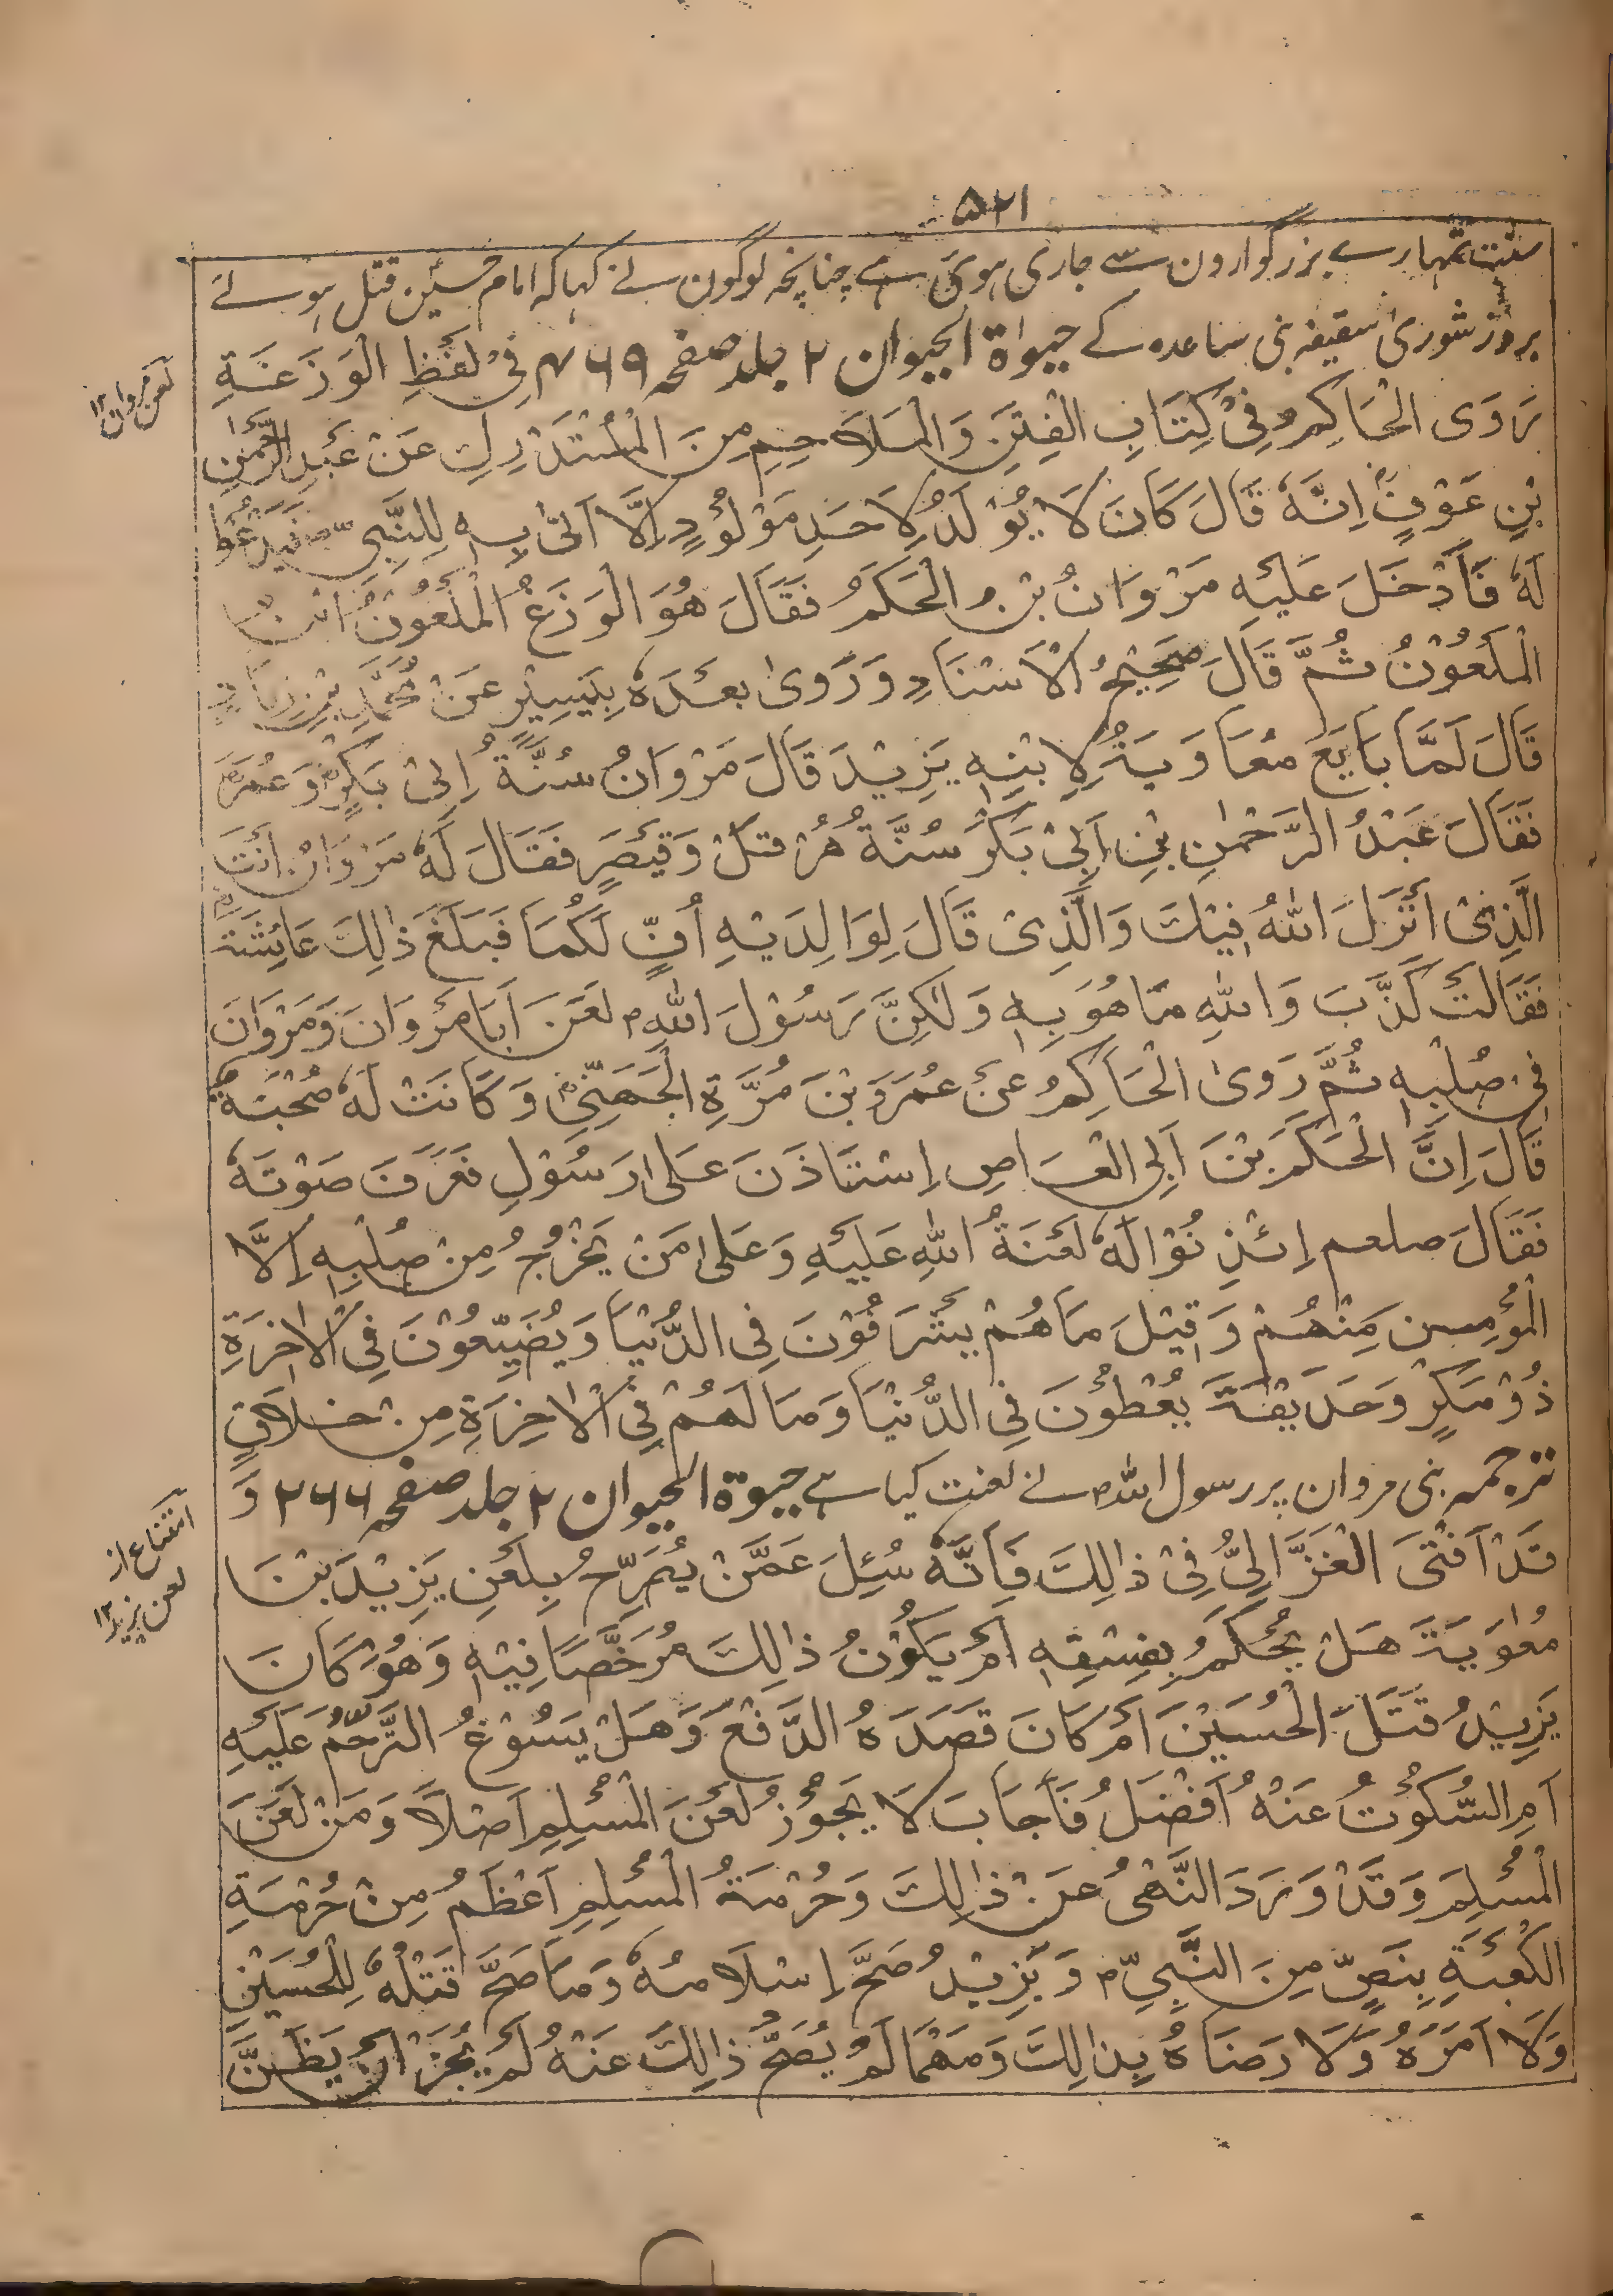 ۵۲۱
سنت تمہارے بزرگوارون سے جاری ہوئی ہے چنانچہ لوگون نے کہا کہ امام حسین قتل ہوئے
بروز شوریٰ سقیفہ بنی ساعدہ کے حیوٰۃ الحیوان ۲ جلد صفحہ ۴۶۹ فِیْ لَفْظِ الْوَزَغَةِ
لعن مروان ۱۲
رَوَی الْحَاکِمُ فِیْ کِتَابِ الْفِتَنِ وَالْمَلَاحِمِ مِنَ الْمُسْتَدْرِكِ عَنْ عَبْدِ الرَّحْمٰنِ
بْنِ عَوْفٍ اِنَّهٗ قَالَ کَانَ لَا یُوْلَدُ لِاَحَدِ مَوْلُوْدٍ اِلَّا اَتٰی بِهٖ لِلنَّبِیِّ ص فَیَدْعُوْا
لَهٗ فَاَدْخَلَ عَلَیْهِ مَرْوَانُ بْنُ الْحَکَمُ فَقَالَ هُوَ الْوَزَغُ الْمَلْعُوْنُ ابْنُ
الْمَلْعُوْنُ ثُمَّ قَالَ صَحِیْحُ الْاَسْنَادِ وَرَوٰی بَعْدَهٗ بِیَسِیْرٍ عَنْ مُحَمَّدِ بْنِ زِیَادٍ
قَالَ لَمَّا بَایَعَ مُعَاوَیَةُ لِابْنِهٖ یَزِیْدَ قَالَ مَرْوَانُ سُنَّةُ اِبِیْ بَکْرٍ وَعُمَرَ
فَقَالَ عَبْدُ الرَّحْمٰنِ بْنِ اَبِیْ بَکْرَ سُنَّةُ هُرْ قَلْ وَقَیْصَرٍ فَقَالَ لَهٗ مَرْوَانْ اَنْتَ
الَّذِیْ اَنْزَلَ اللهُ فِیْكَ وَالَّذِیْ قَالَ لِوَالِدَیْهِ اُفٍّ لَکُمَا فَبَلَغَ ذٰلِكَ عَائِشَةَ
فَقَالَتْ کَذَّبَ وَاللهِ مَا هُوَ بِهٖ وَلٰکِنَّ رَسُوْلَ اللهِ لَعَنَ اَبَا مَرْوَانَ وَمَرْوَانَ
فِی صُلْبِهٖ ثُمَّ رَوٰی الْحَاکِمُ عَنْ عُمَرَوَ بْنَ مُرَّةِ الْجَهَنِّیِّ وَکَانَتْ لَهٗ صُحْبَةٌ
قَالَ اِنَّ الْحَکَمَ بْنَ اَبِی الْعَاصِ اِسْتَاذَنَ عَلٰی رَسُوْلِ فَعَرَفَ صَوْتَهٗ
فَقَالَ صلعم اِئْذِنُوْا لَهٗ لَعْنَةُ اللهِ عَلَیْهِ وَعَلٰی مَنْ یَخْرُجُ مِنْ صُلْبِهٖ اِلَّا
الْمُؤْمِسن مِنْهُمْ وَقِیْلَ مَاهُمْ یُشْرَفُوْنَ فِی الدُّنْیَا وَیُضَیِّعُوْنَ فِی الْاٰخِرَةِ
ذُوْمَکْرٍ وَحَدَیْقَةَ یُعْطَوْنَ فِی الدُّنْیَا وَمَا لَهُمْ فِی الْاٰخِرَةِ مِنْ خَلَاقٍ
ترجمہ بنی مروان پر رسول اللہ م نے لعنت کیا ہے حیوۃ الحیوان ۲ جلد صفحہ ۲۶۶ وَ
امتناع از
لعن یزید ۱۲
قَدْ اَفْتَی الْغَزَّالِیُّ فِیْ ذٰلِكَ فَاِنَّهٗ سُئِلَ عَمَّنْ یُصَرِّحُ بِلَعْنِ یَزِیْدَ بْنَ
مُعٰوِیَةَ هَلْ یُحْکَمُ بِفِسْقِهٖ اَمْ یَکُوْنُ ذٰلِكَ مُرَخَّصًا فِیْهِ وَهُوَ کَانَ
یَزِیْدُ قَتَلَ الْحُسَیْنَ اَمْ کَانَ قَصَدَهُ الدَّفْعَ وَهَلْ یَسُوْغُ التَّرَحُّمُ عَلَیْهِ
اَمِ السُّکُوْتُ عَنْهُ اَفْضَلُ فَاَجَابَ لَا یَجُوْزُ لَعْنَ الْمُسْلِمِ اَصْلًا وَمَنْ لَعَنَ
الْمُسْلِمَ وَقَدْ وَرَدَ النَّهْیُ عَنْ ذٰلِكَ وَحُرْمَةُ الْمُسْلِمِ اَعْظَمُ مِنْ حُرْمَةِ
الْکَعْبَةِ بِنَصٍّ مِنَ النَّبِیِّ م وَیَزِیْدُ صَحَّ اِسْلَامُهٗ وَمَا صَحَّ قَتْلُهٗ لِلْحُسَیْنِ
وَلَا اَمَرَهُ وَلَا رَضَاهُ بِذٰلِكَ وَمَهْمَا لَمْ یُصَحَّ ذٰلِكَ عَنْهُ لَمْ یَجُزْ اَنْ یَظُنَّ